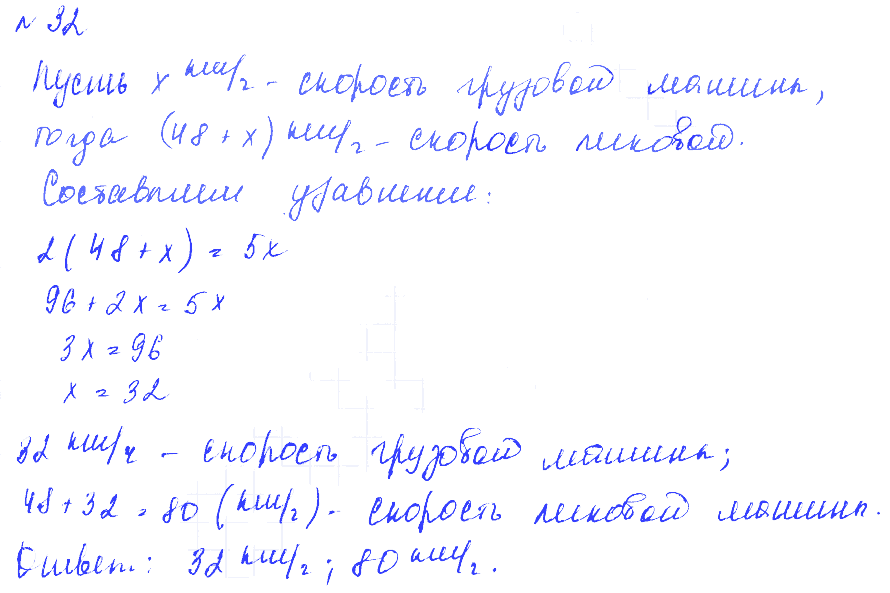 № 32
Пусть x км/ч - скорость грузовой машины,
тогда (48 + x) км/ч - скорость легковой.
Составляем уравнение:
2(48 + x) = 5x
96 + 2x = 5x
3x = 96
x = 32
32 км/ч - скорость грузовой машины;
48 + 32 = 80 (км/ч) - скорость легковой машины.
Ответ: 32 км/ч; 80 км/ч.